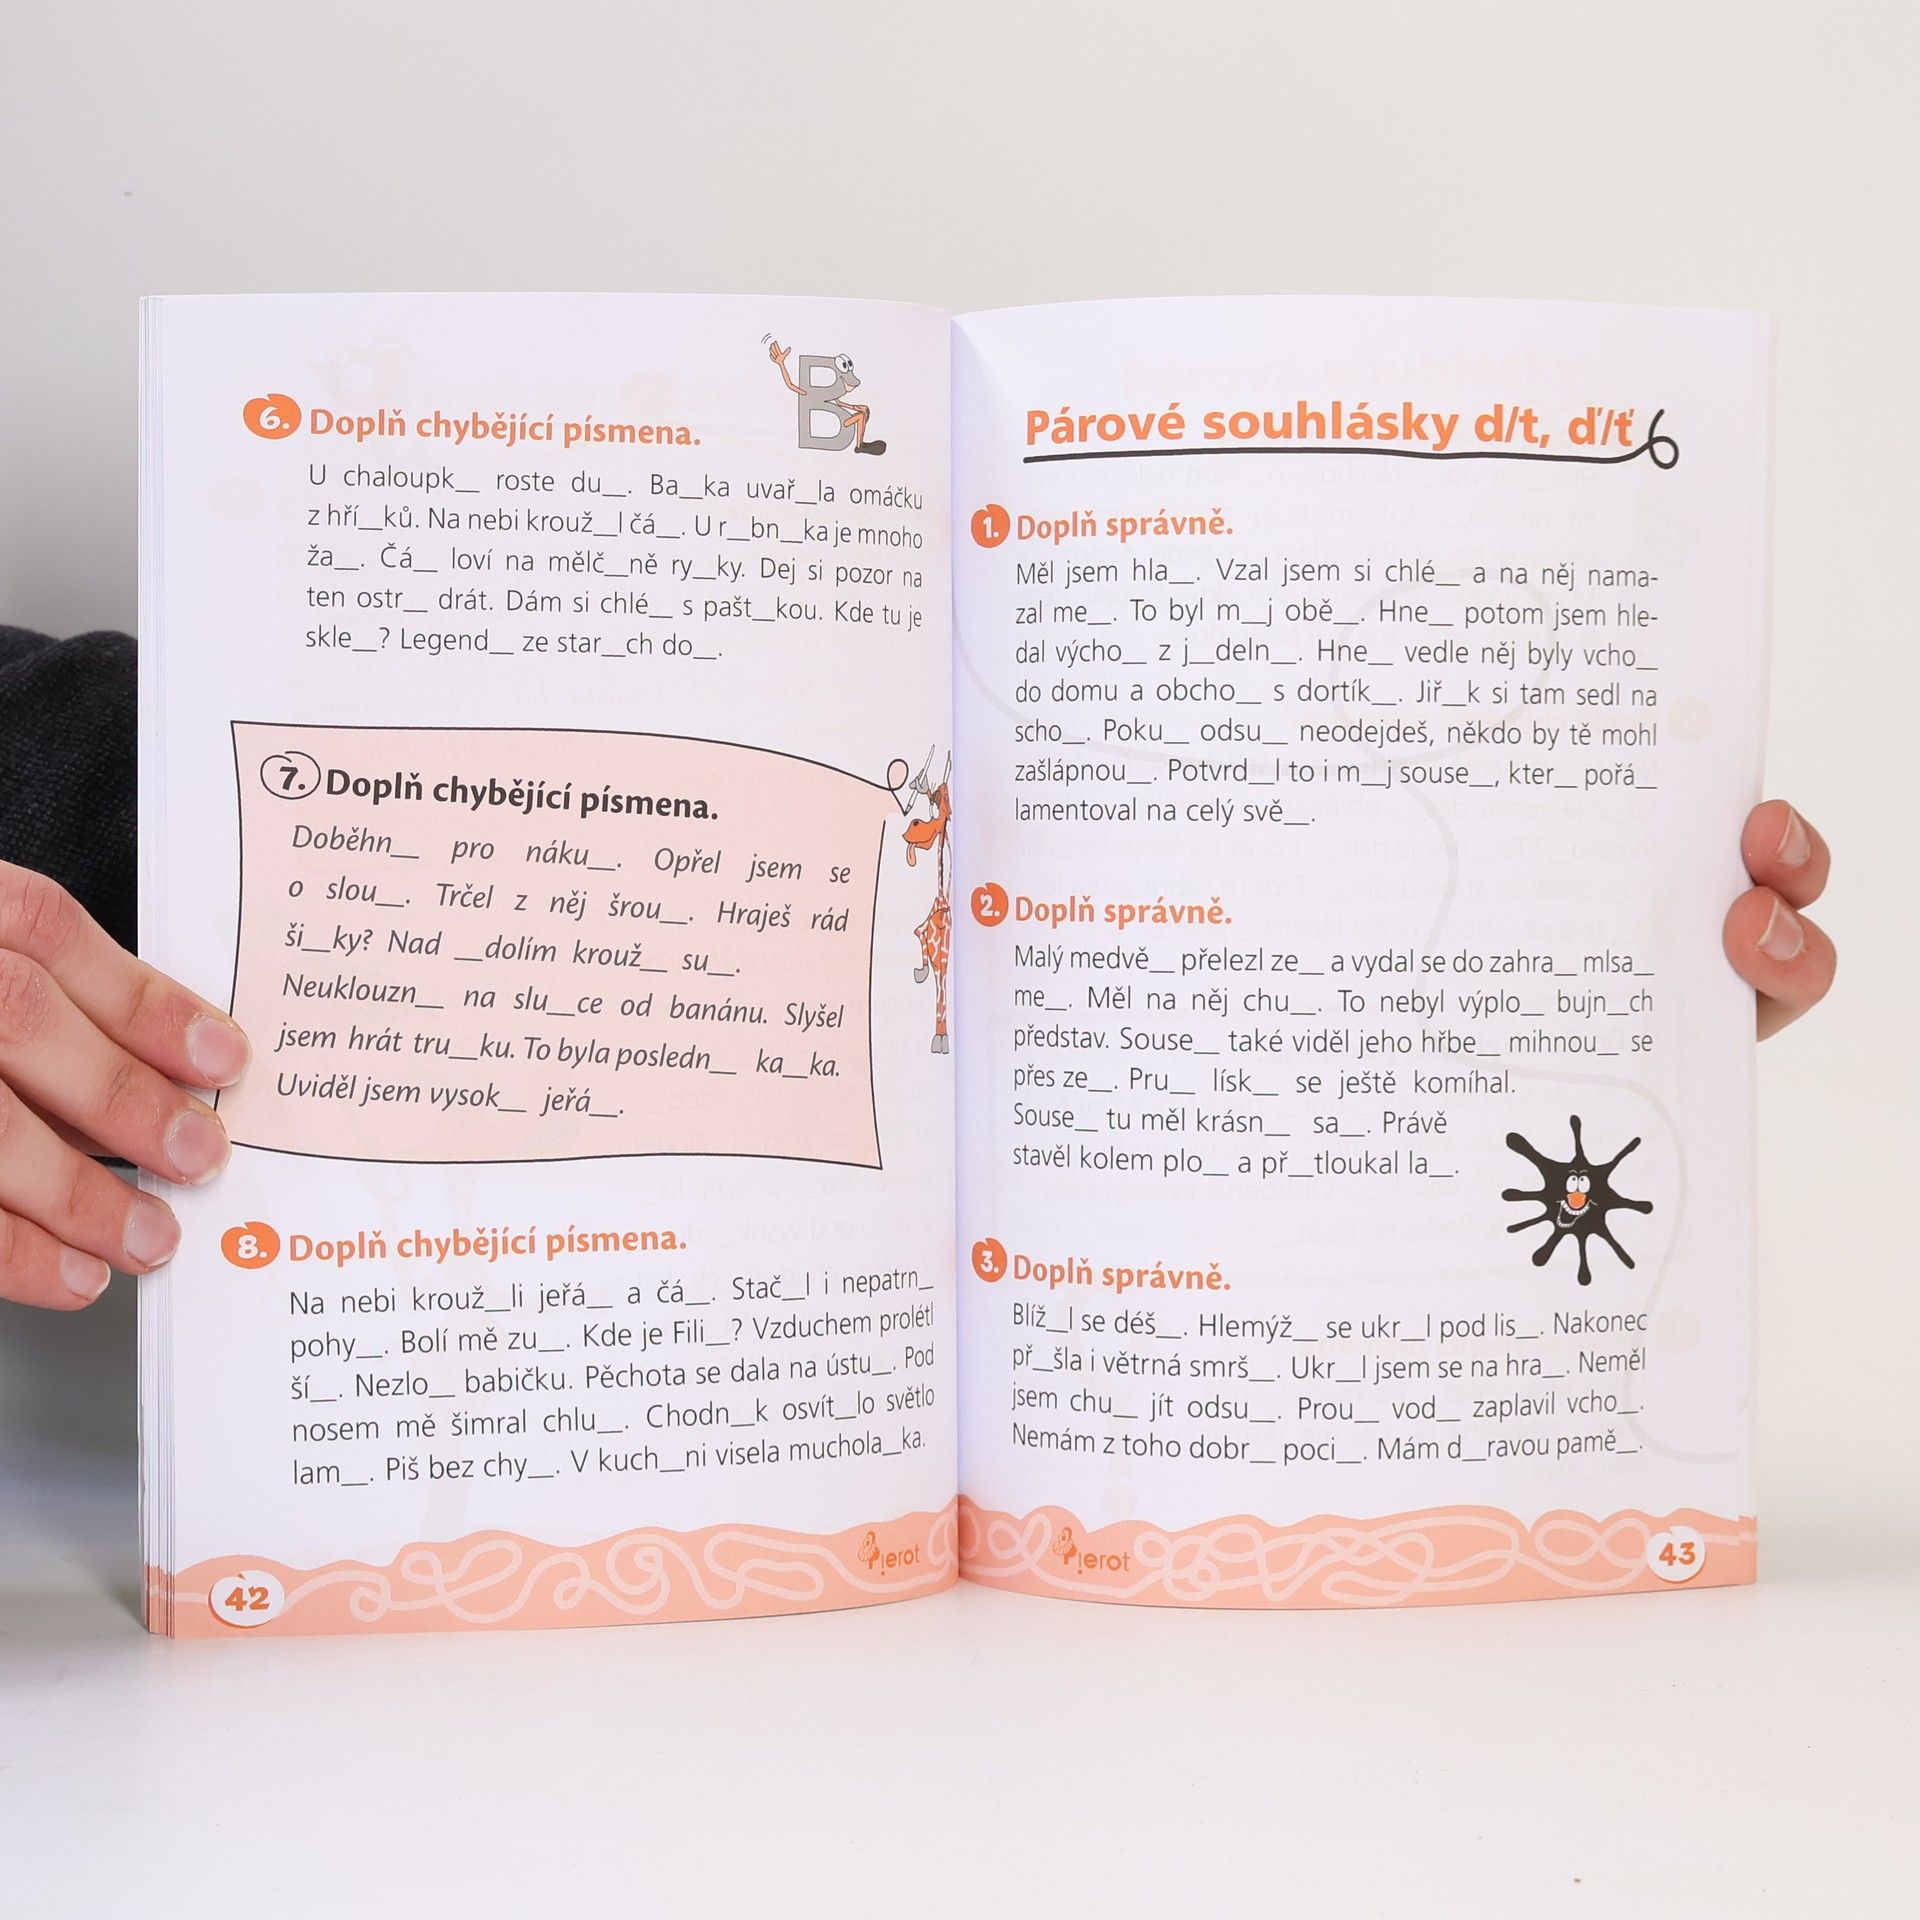 6. Doplň chybějící písmena.
U chaloupk__ roste du__. Ba__ka uvař__la omáčku
z hří__ků. Na nebi krouž__l čá__. U r__bn__ka je mnoho
ža__. Čá__ loví na mělč__ně ry__ky. Dej si pozor na
ten ostr__ drát. Dám si chlé__ s pašt__kou. Kde tu je
skle__? Legend__ ze star__ch do__.
7. Doplň chybějící písmena.
Doběhn__ pro náku__. Opřel jsem se
o slou__. Trčel z něj šrou__. Hraješ rád
ši__ky? Nad __dolím krouž__ su__.
Neuklouzn__ na slu__ce od banánu. Slyšel
jsem hrát tru__ku. To byla posledn__ ka__ka.
Uviděl jsem vysok__ jeřá__.
8. Doplň chybějící písmena.
Na nebi krouž__li jeřá__ a čá__. Stač__l i nepatrn_
pohy__. Bolí mě zu__. Kde je Fili__? Vzduchem prolétl
ší__. Nezlo__ babičku. Pěchota se dala na ústu__. Pod
nosem mě šimral chlu__. Chodn__k osvít__lo světlo
lam__. Piš bez chy__. V kuch__ni visela muchola__ka.
Pierot
42
Párové souhlásky d/t, ď/ť
1. Doplň správně.
Měl jsem hla__. Vzal jsem si chlé__ a na něj nama-
zal me__. To byl m__j obě__. Hne__ potom jsem hle-
dal výcho__ z j__deln__. Hne__ vedle něj byly vcho__
do domu a obcho__ s dortík__. Jiř__k si tam sedl na
scho__. Poku__ odsu__ neodejdeš, někdo by tě mohl
zašlápnou__. Potvrd__l to i m__j souse__, kter__ pořá__
lamentoval na celý svě__.
2. Doplň správně.
Malý medvě__ přelezl ze__ a vydal se do zahra__ mlsa__
me__. Měl na něj chu__. To nebyl výplo__ bujn__ch
představ. Souse__ také viděl jeho hřbe__ mihnou__ se
přes ze__. Pru__ lísk__ se ještě komíhal.
Souse__ tu měl krásn__ sa__. Právě
stavěl kolem plo__ a př__tloukal la__.
3. Doplň správně.
Blíž__l se déš__. Hlemýž__ se ukr__l pod lis__. Nakonec
př__šla i větrná smrš__. Ukr__l jsem se na hra__. Neměl
jsem chu__ jít odsu__. Prou__ vod__ zaplavil vcho__.
Nemám z toho dobr__ poci__. Mám d__ravou pamě__.
Pierot
43